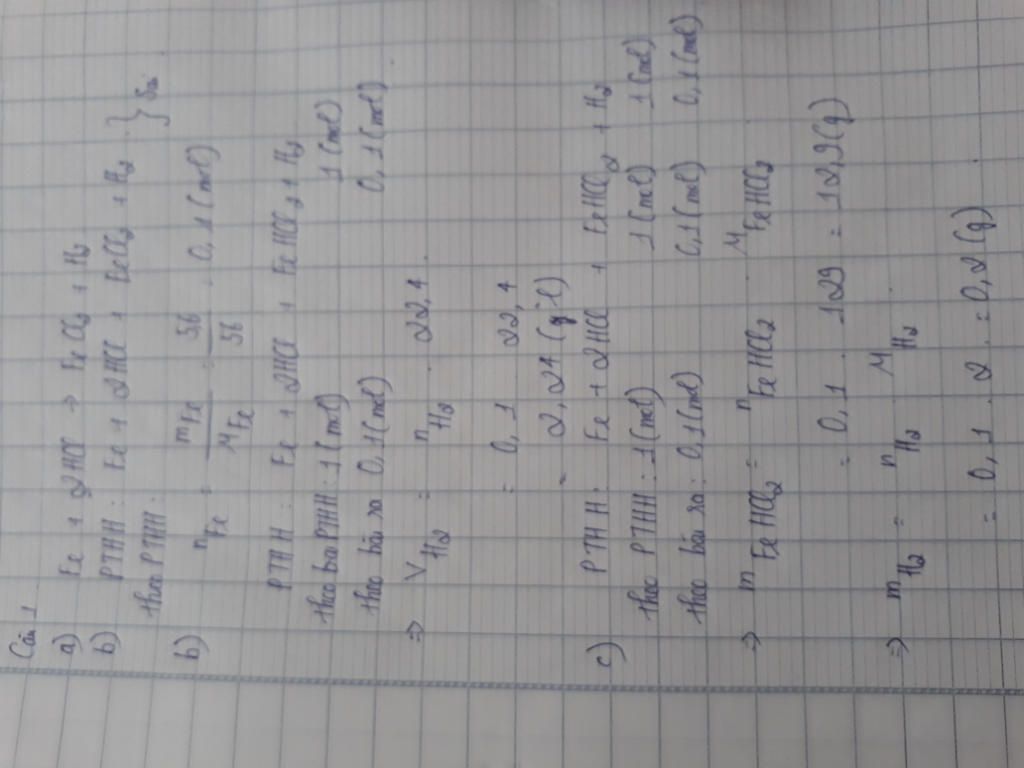 Câu 1
a) Fe + 2HCl → FeCl₂ + H₂
b) PTHH : Fe + 2HCl + FeCl₂ + H₂ }
theo PTHH :
b) nFe = mFe / MFe = 5,6 / 56 = 0,1 (mol)
PTHH : Fe + 2HCl + FeHCl₂ + H₂
theo PTHH : 1 (mol) 1 (mol)
theo bài ra 0,1 (mol) 0,1 (mol)
=> VH₂ = nH₂ . 22,4
= 0,1 22,4
= 2,24 (l)
c) PTHH : Fe + 2HCl + FeHCl₂ + H₂
theo PTHH : 1 (mol) 1 (mol) 1 (mol)
theo bài ra : 0,1 (mol) 0,1 (mol) 0,1 (mol)
=> mFeHCl₂ = nFeHCl₂ . MFeHCl₂
= 0,1 . 129 = 12,9 (g)
=> mH₂ = nH₂ MH₂
= 0,1 . 2 = 0,2 (g)